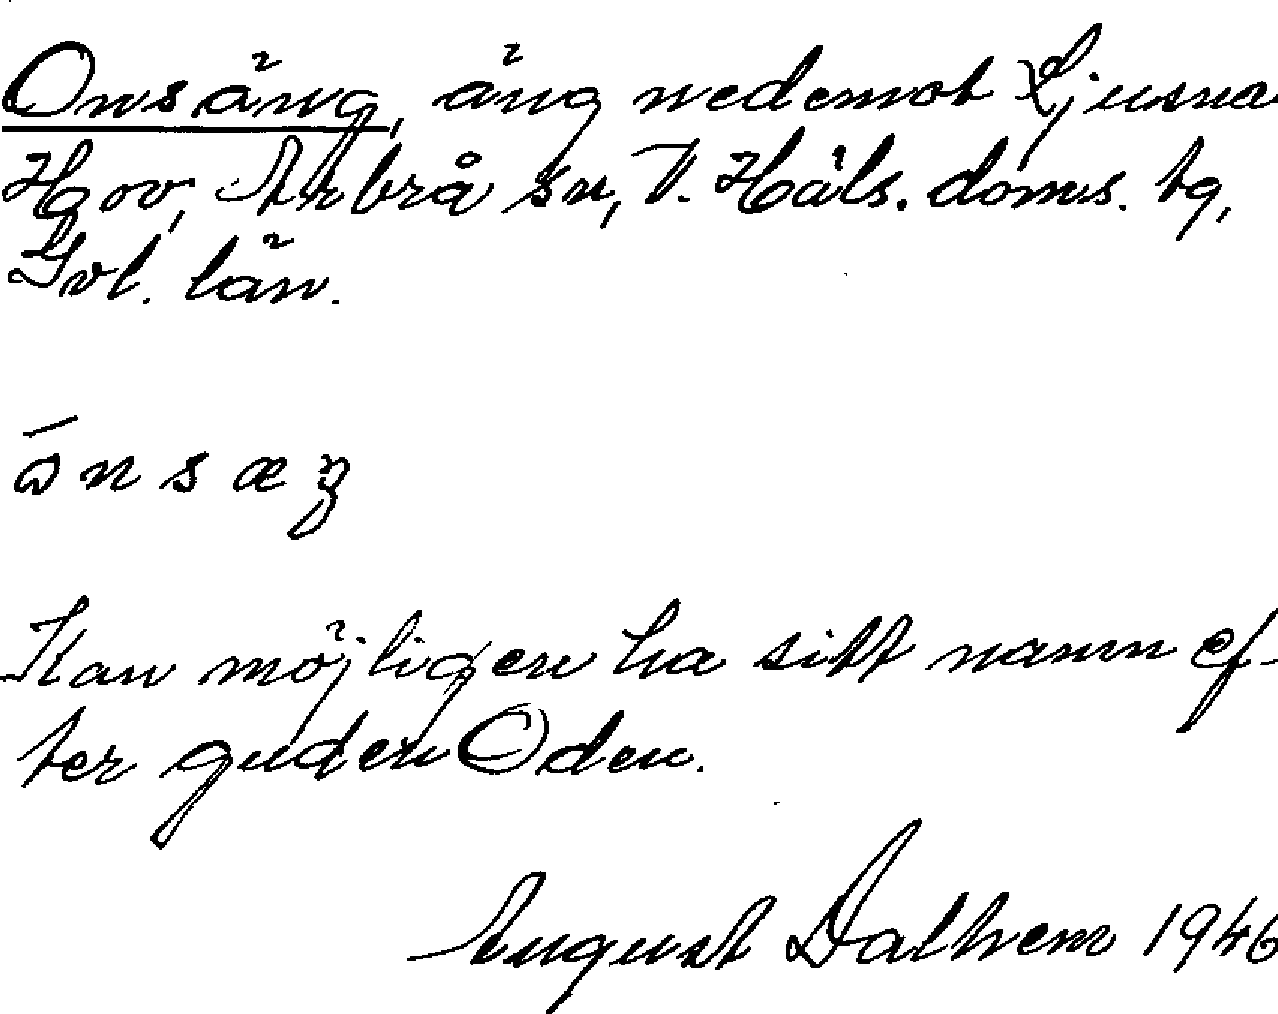 Onsäng, äng nedemot Ljusna
Hov, Arbrå sn, V. Häls. doms. tg,
Gvl. län.
Kan möjligen ha sitt namn ef-
ter guden Oden.
August Dalhem 1946